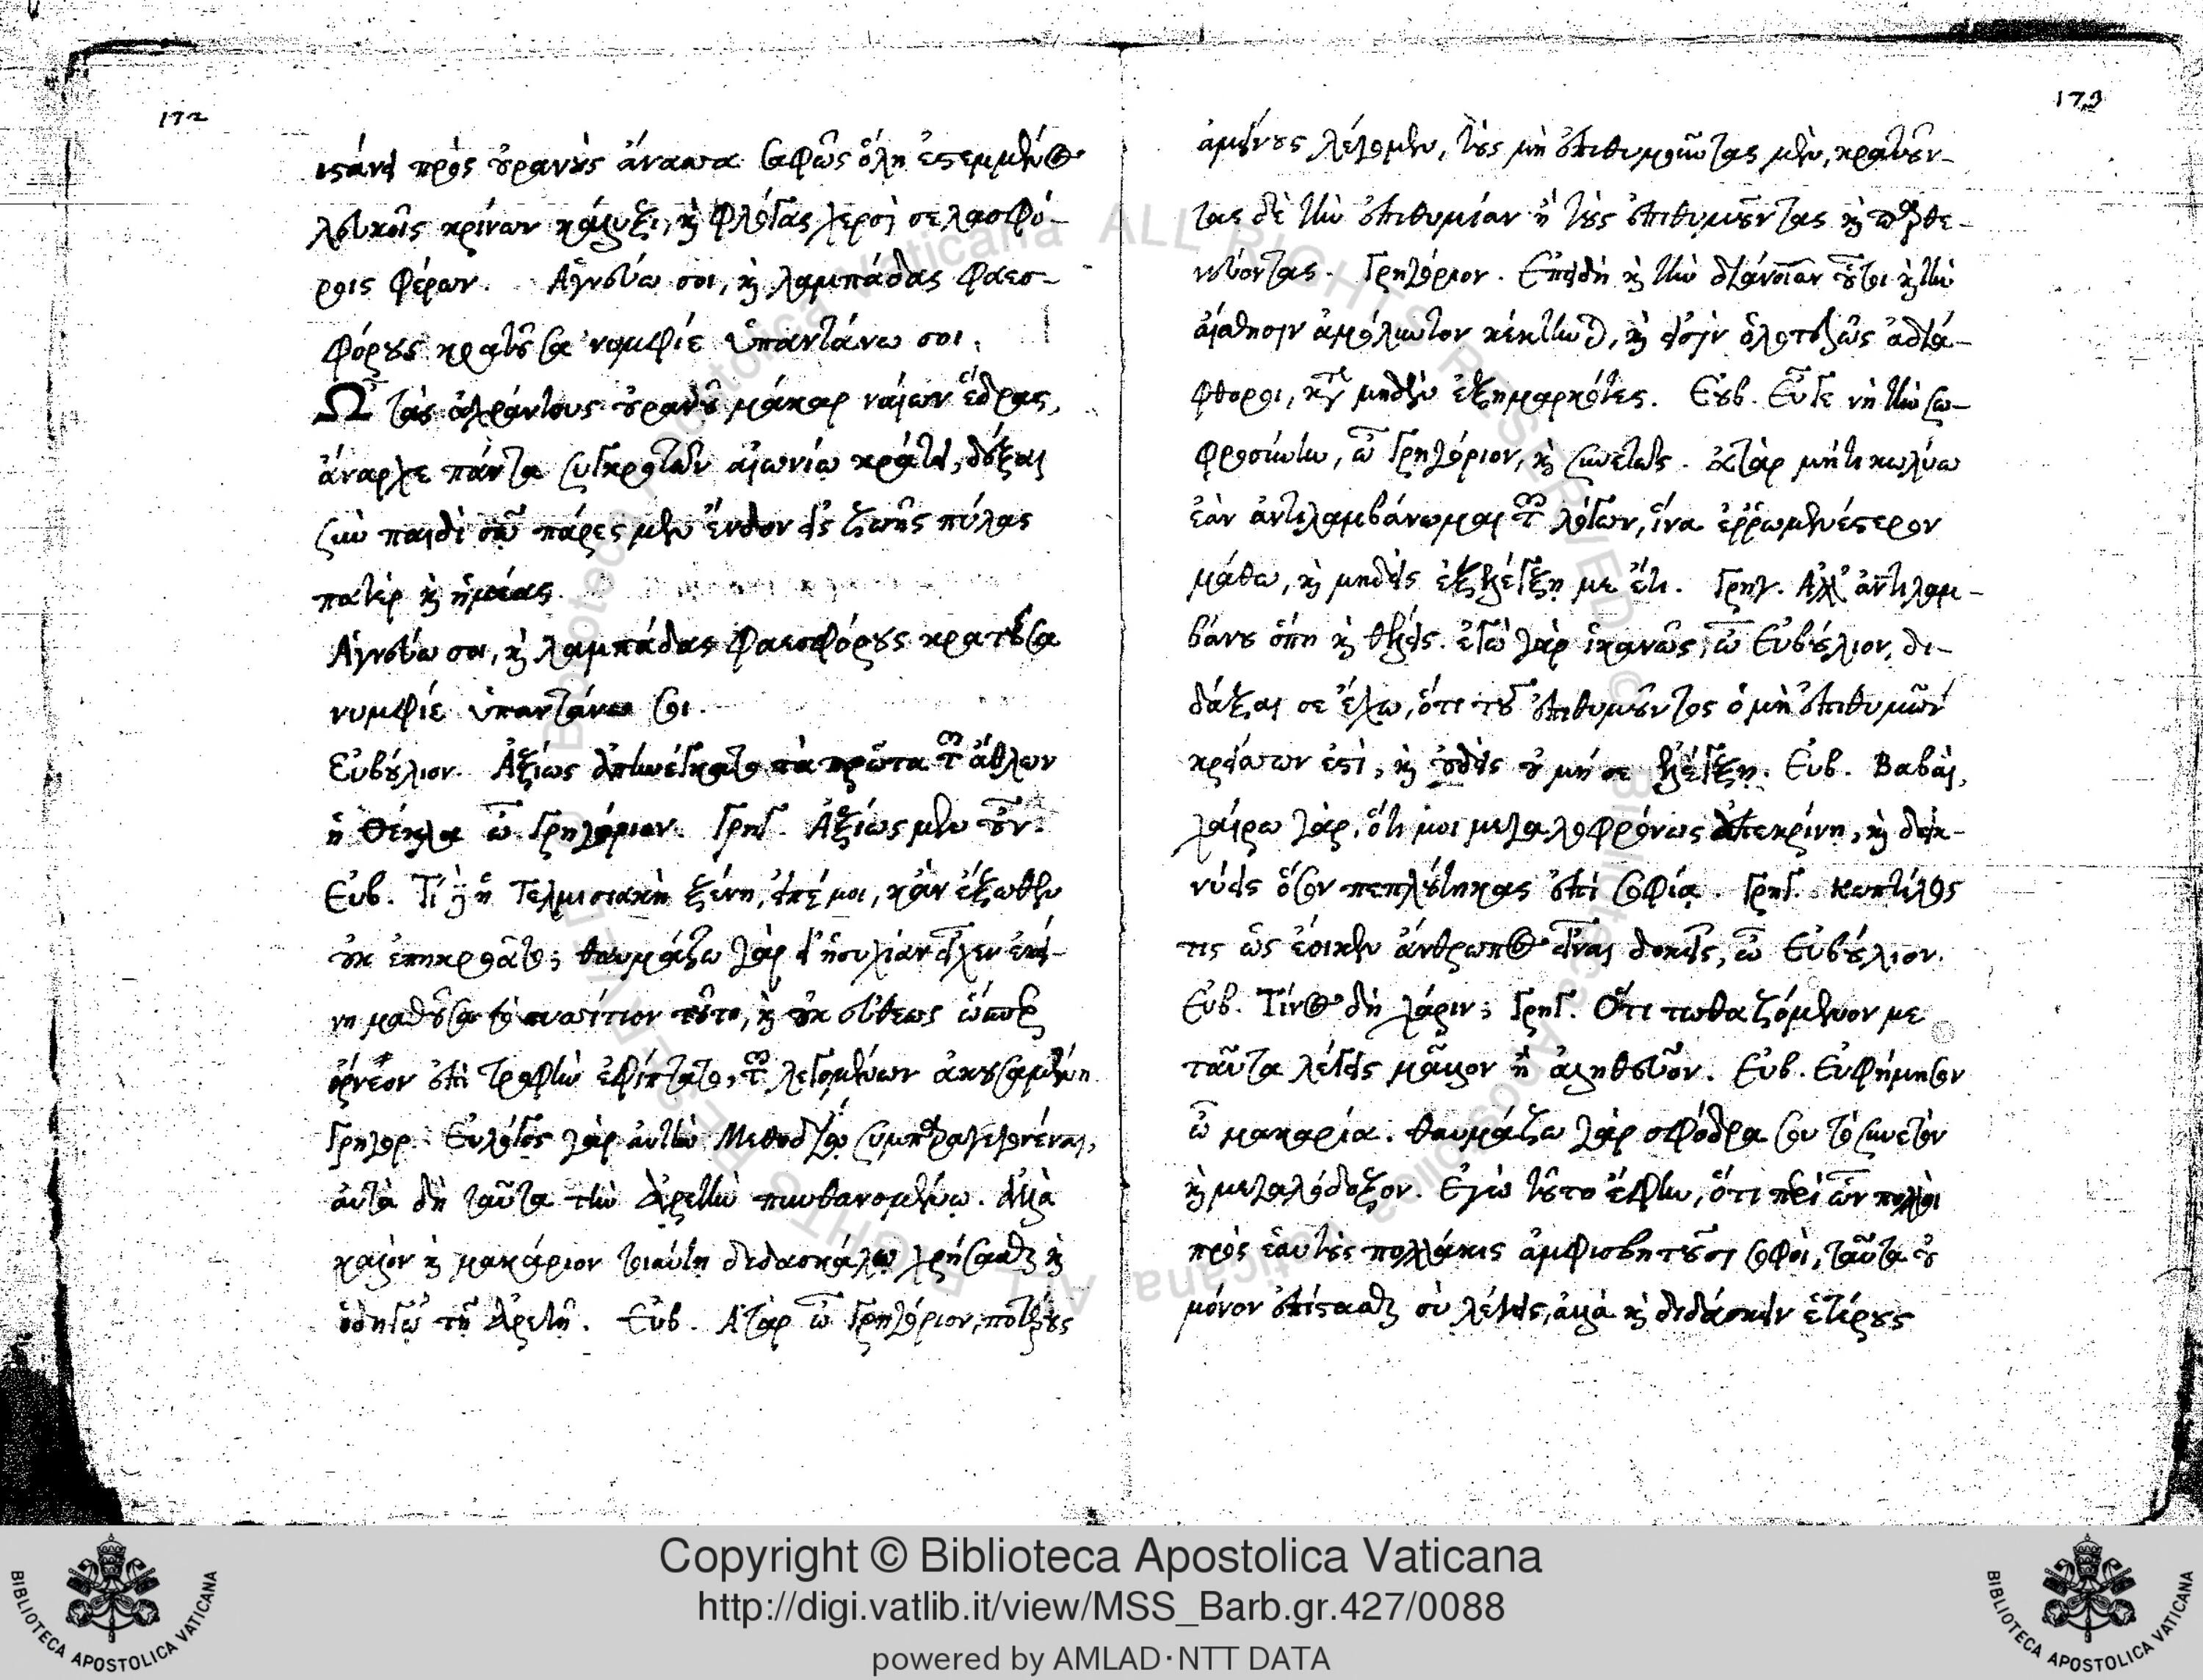 172
ιστάνει πρὸς οὐρανοὺς ἄνασσα σαφῶς ὅλη ἐστεμμένος
λευκοῖς κρίνων κάλυξι, καὶ φλόγας χερσὶ σελασφό-
ροις φέρων. Ἁγνεύω σοι, καὶ λαμπάδας φαεσ-
φόρους κρατοῦσα νυμφίε ὑπαντάνω σοι.
Ὦ τὰς ἀχράντους οὐρανοῦ μάκαρ ναίων ἕδρας,
ἄναρχε πάντα συγκροτῶν αἰωνίῳ κράτει, δέξαι
σὺν παιδὶ σῷ πάρεσμεν ἔνδον εἰς ζωῆς πύλας
πάτερ καὶ ἡμέας.
Ἁγνεύω σοι, καὶ λαμπάδας φαεσφόρους κρατοῦσα
νυμφίε ὑπαντάνω σοι.
Εὐβούλιον. Ἀξίως ἀπηνέγκατο τὰ πρῶτα τῶν ἄθλων
ἡ Θέκλα ὦ Γρηγόριον. Γρηγ. Ἀξίως μὲν οὖν.
Εὐβ. Τί δὲ ἡ Τελμισιακὴ ξένη, εἰπέ μοι, κἂν ἔξωθεν
οὐκ ἐπηκροᾶτο; θαυμάζω γὰρ εἰ ἡσυχίαν εἶχεν ἐκεί-
νη μαθοῦσα τὸ συσσίτιον τοῦτο, καὶ οὐκ εὐθέως ὥσπερ
ὄρνεον ἐπὶ τροφὴν ἐφίπτατο, τῶν λεγομένων ἀκουσαμένη.
Γρηγορ. Εὔλογος γὰρ αὐτὴν Μεθοδίῳ συμπαραγεγονέναι,
αὐτὰ δὴ ταῦτα τὴν Ἀρετὴν πυνθανομένῳ. Ἀλλὰ
καλὸν καὶ μακάριον τοιαύτῃ διδασκάλῳ χρήσασθαι καὶ
ὁδηγῷ τῇ Ἀρετῇ. Εὐβ. Ἀτὰρ ὦ Γρηγόριον, ποτέρους
173
ἀμείνους λέγομεν, τοὺς μὴ ἐπιθυμοῦντας μὲν, κρατοῦν-
τας δὲ τὴν ἐπιθυμίαν ἢ τοὺς ἐπιθυμοῦντας καὶ παρθε-
νεύοντας. Γρηγόριον. Ἐπειδὴ καὶ τὴν διάνοιαν οὗτοι καὶ τὴν
αἴσθησιν ἀμόλυντον κέκτηνται, καὶ εἰσὶν ὁλοτελῶς ἀδιά-
φθοροι, κατὰ μηδὲν ἐξημαρκότες. Εὐβ. Εὖγε νὴ τὴν σω-
φροσύνην, ὦ Γρηγόριον, καὶ συνετῶς. ἀτὰρ μήτι κωλύω
ἐὰν ἀντιλαμβάνωμαι τῶν λόγων, ἵνα ἐρρωμενέστερον
μάθω, καὶ μηδεὶς ἐξελέγξῃ με ἔτι. Γρηγ. Ἀλλ' ἀντιλαμ-
βάνου ὅπη καὶ θέλεις. ἐγὼ γὰρ ἱκανῶς, ὦ Εὐβούλιον, δι-
δάξαι σε ἔχω, ὅτι τοῦ ἐπιθυμοῦντος ὁ μὴ ἐπιθυμῶν
κρείσσων ἐστὶ, καὶ οὐδεὶς οὐ μή σε ἐλέγξῃ. Εὐβ. Βαβαὶ,
χαίρω γὰρ, ὅτι μοι μεγαλοφρόνως ἀπεκρίνῃ, καὶ δεικ-
νύεις ὅσον πεπλούτηκας ἐπὶ σοφίᾳ. Γρηγ. Κωτίλος
τις ὡς ἔοικεν ἄνθρωπος εἶναι δοκεῖς, ὦ Εὐβούλιον.
Εὐβ. Τίνος δὴ χάριν; Γρηγ. Ὅτι τωθαζόμενον με
ταῦτα λέγεις μᾶλλον ἢ ἀληθεῦον. Εὐβ. Εὐφήμησον
ὦ μακαρία. θαυμάζω γὰρ σφόδρα σου τὸ συνετὸν
καὶ μεγαλόδοξον. Ἐγὼ τοῦτο ἔφην, ὅτι περὶ ὧν πολλοὶ
πρὸς ἑαυτοὺς πολλάκις ἀμφισβητοῦσι σοφοὶ, ταῦτα οὐ
μόνον ἐπίστασθαι σὺ λέγεις, ἀλλὰ καὶ διδάσκειν ἑτέρους
Copyright © Biblioteca Apostolica Vaticana
http://digi.vatlib.it/view/MSS_Barb.gr.427/0088
powered by AMLAD·NTT DATA
BIBLIOTECA APOSTOLICA VATICANA
BIBLIOTECA APOSTOLICA VATICANA